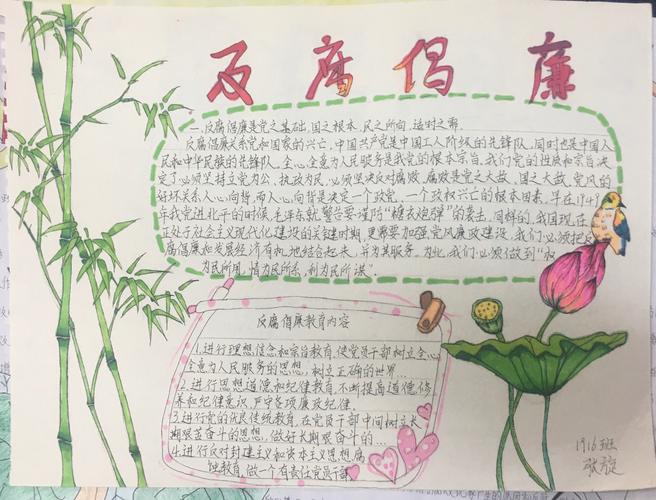 反腐倡廉
一.反腐倡廉是党之基础,国之根本,民之所向,适时之需.
反腐倡廉关系党和国家的兴亡.中国共产党是中国工人阶级的先锋队,同时也是中国人
民和中华民族的先锋队.全心全意为人民服务是我党的根本宗旨.我们党的性质和宗旨决
定了必须坚持立党为公、执政为民,必须坚决反对腐败.腐败是党之大敌,国之大敌.党风的
好坏关系人心向背,而人心向背是决定一个政党、一个政权兴亡的根本因素.早在1949
年我党进北平的时候,毛泽东就警告要谨防"糖衣炮弹"的袭击.同样的,我国现在
正处于社会主义现代化建设的关键时期,更需要加强党风廉政建设,我们必须把反
腐倡廉和发展经济有机地结合起来,并为其服务.为此,我们必须做到"权
为民所用,情为民所系,利为民所谋".
反腐倡廉教育内容
1.进行理想信念和宗旨教育,使党员干部树立全心
全意为人民服务的思想,树立正确的世界...
2.进行思想道德和纪律教育,不断提高道德修
养和纪律意识,严守各项廉政纪律.
3.进行党的优良传统教育,在党员干部中间树立长
期艰苦奋斗的思想,做好长期艰奋斗的...
4.进行反对封建主义和资本主义思想腐
蚀教育,做一个有责任党员干部
1月16班